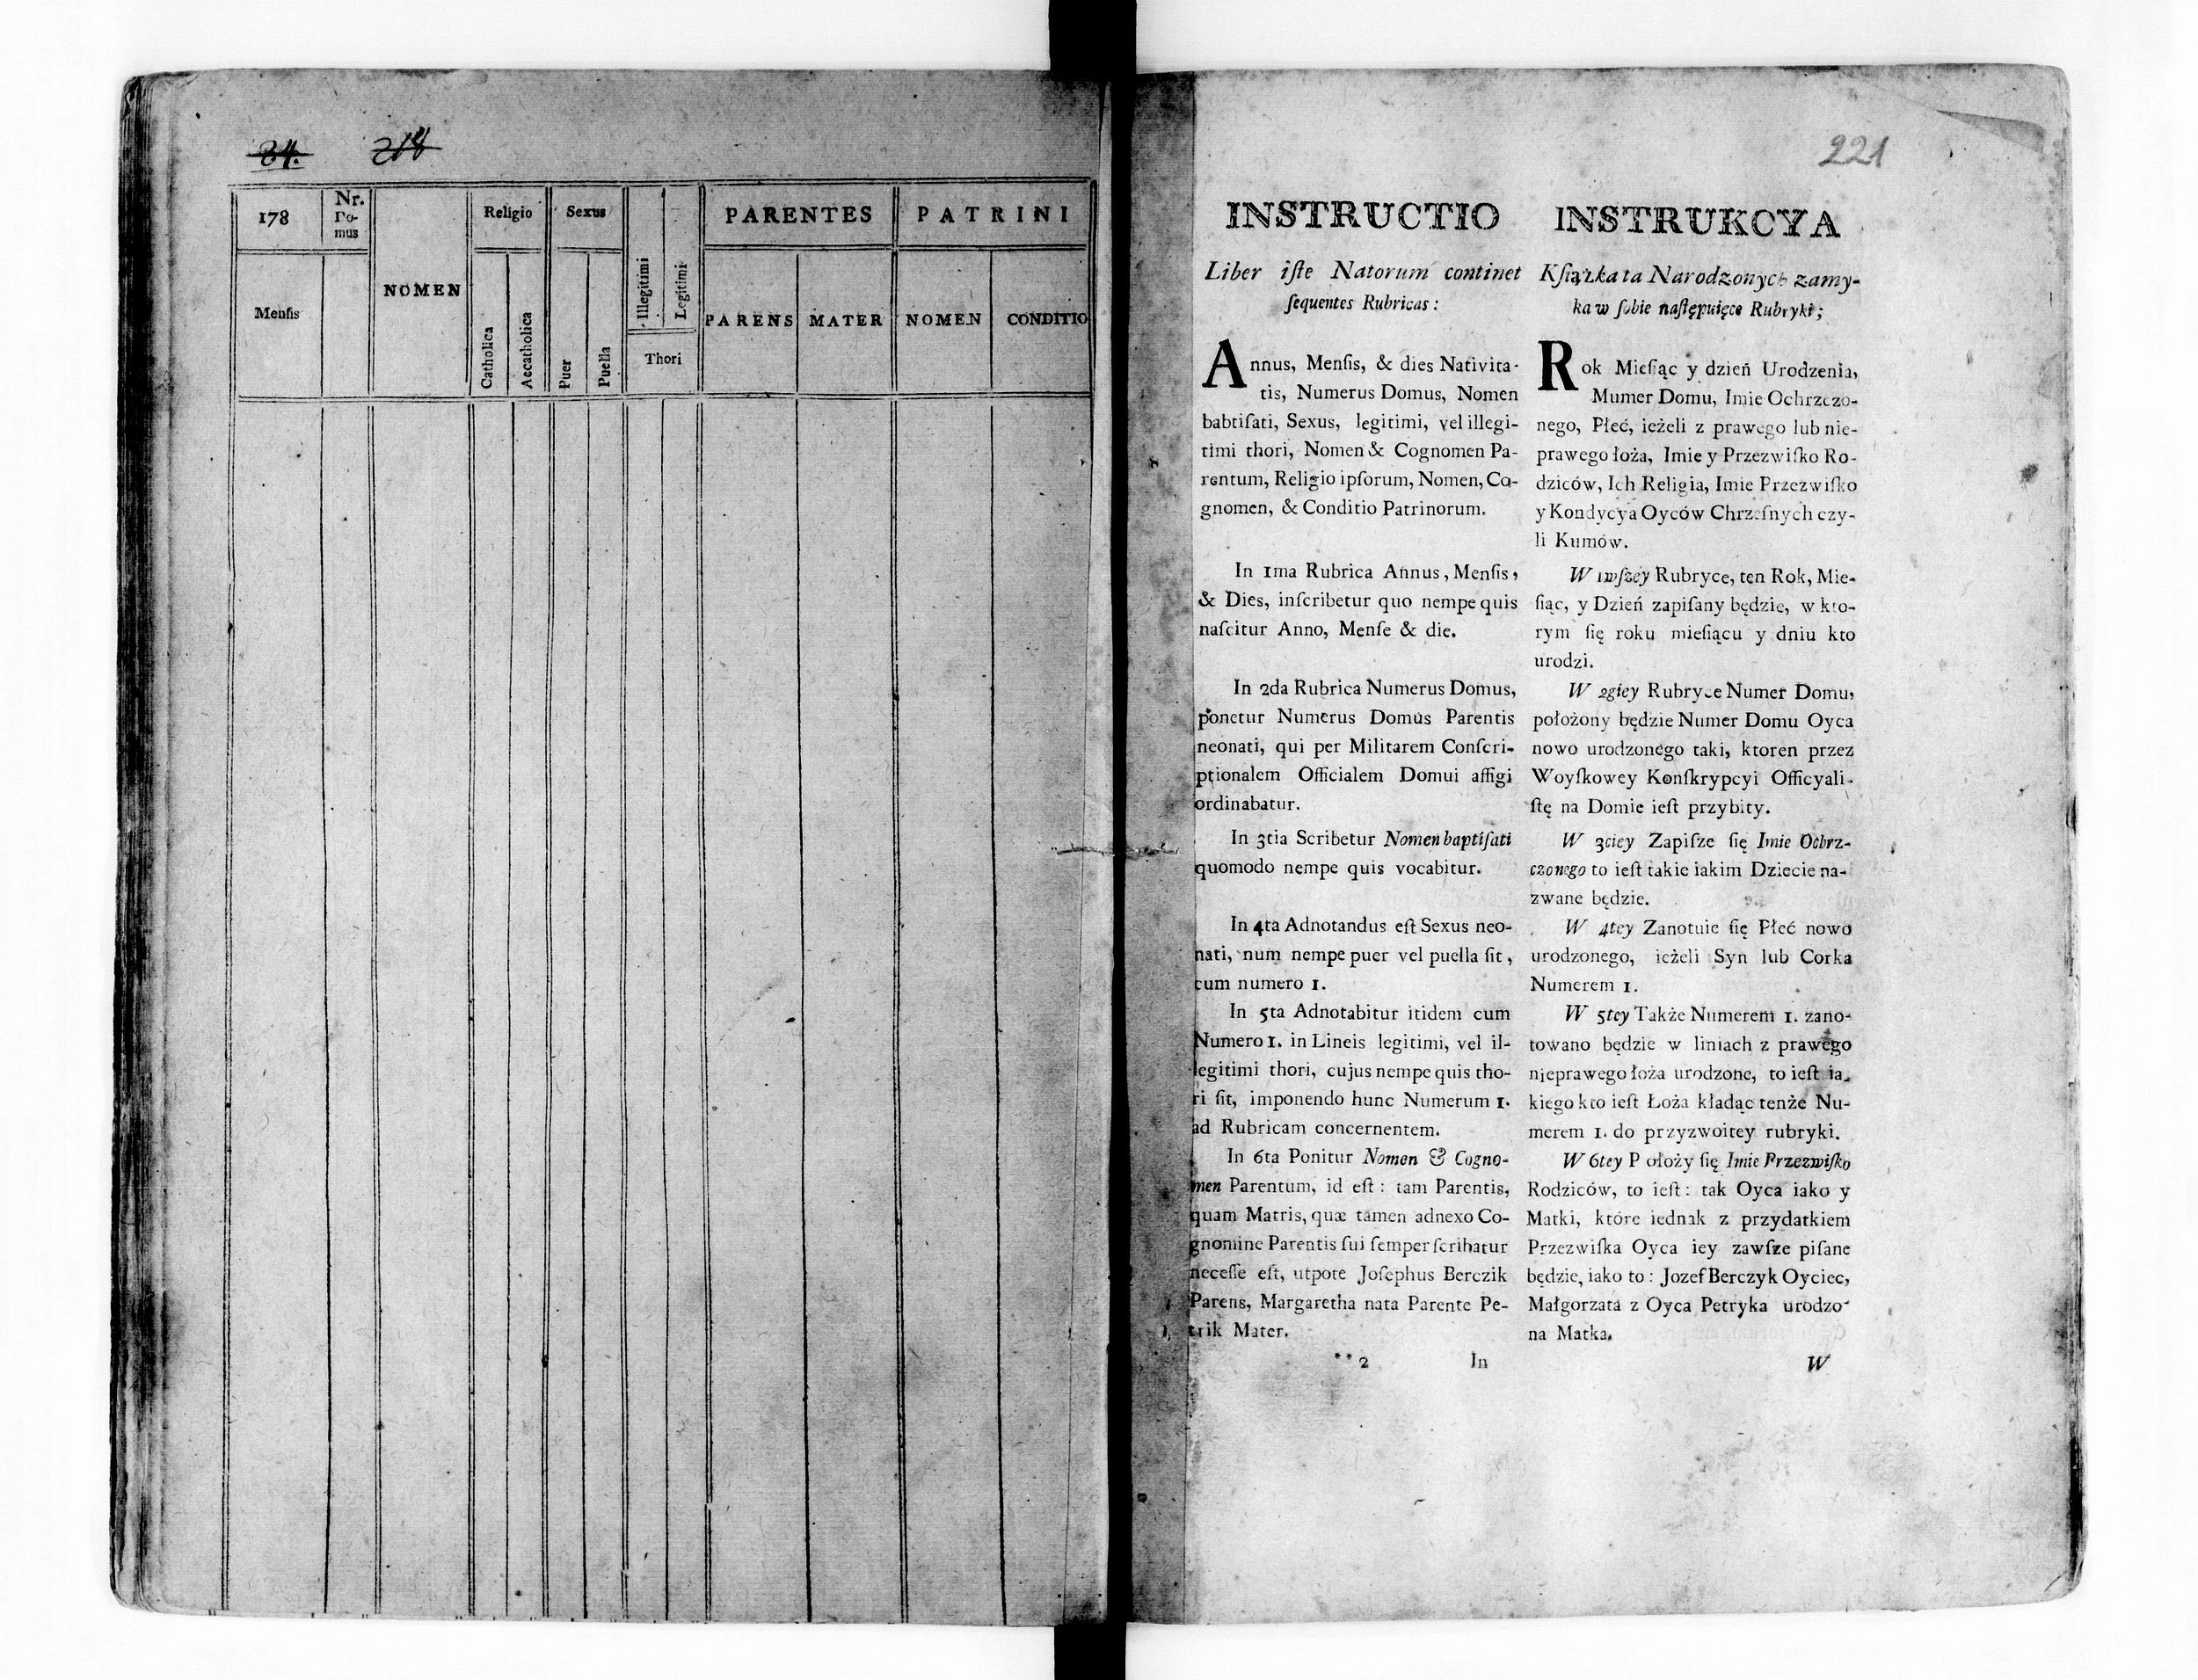 34. 218
178
Nr.
Do-
mus
NOMEN
Religio
Sexus
Illegitimi
Legitimi
PARENTES
PATRINI
Mensis
Catholica
Accatholica
Puer
Puella
Thori
PARENS
MATER
NOMEN
CONDITIO
221
INSTRUCTIO
Liber iſte Natorum continet
ſequentes Rubricas:
Annus, Menſis, & dies Nativita-
tis, Numerus Domus, Nomen
babtiſati, Sexus, legitimi, vel illegi-
timi thori, Nomen & Cognomen Pa-
rentum, Religio ipſorum, Nomen, Co-
gnomen, & Conditio Patrinorum.
In 1ma Rubrica Annus, Menſis,
& Dies, inſcribetur quo nempe quis
naſcitur Anno, Menſe & die.
In 2da Rubrica Numerus Domus,
ponetur Numerus Domus Parentis
neonati, qui per Militarem Conſcri-
ptionalem Officialem Domui affigi
ordinabatur.
In 3tia Scribetur Nomen baptiſati
quomodo nempe quis vocabitur.
In 4ta Adnotandus eſt Sexus neo-
nati, num nempe puer vel puella ſit,
cum numero 1.
In 5ta Adnotabitur itidem cum
Numero 1. in Lineis legitimi, vel il-
legitimi thori, cujus nempe quis tho-
ri ſit, imponendo hunc Numerum 1.
ad Rubricam concernentem.
In 6ta Ponitur Nomen & Cogno-
men Parentum, id eſt: tam Parentis,
quam Matris, quæ tamen adnexo Co-
gnomine Parentis ſui ſemper ſcribatur
neceſſe eſt, utpote Joſephus Berczik
Parens, Margaretha nata Parente Pe-
trik Mater.
**2 In
INSTRUKCYA
Kſiążka ta Narodzonych zamy-
ka w ſobie naſtępuięce Rubryki;
Rok Mieſiąc y dzień Urodzenia,
Mumer Domu, Imie Ochrzczo-
nego, Płeć, ieżeli z prawego lub nie-
prawego łoża, Imie y Przezwiſko Ro-
dziców, Ich Religia, Imie Przezwiſko
y Kondycya Oyców Chrzeſnych czy-
li Kumów.
W 1wſzey Rubryce, ten Rok, Mie-
ſiąc, y Dzień zapiſany będzie, w kto-
rym ſię roku mieſiącu y dniu kto
urodzi.
W 2giey Rubryce Numer Domu,
położony będzie Numer Domu Oyca
nowo urodzonego taki, ktoren przez
Woyſkowey Konſkrypcyi Officyali-
ſtę na Domie ieſt przybity.
W 3ciey Zapiſze ſię Imie Ochrz-
czonego to ieſt takie iakim Dziecie na-
zwane będzie.
W 4tey Zanotuie ſię Płeć nowo
urodzonego, ieżeli Syn lub Corka
Numerem 1.
W 5tey Także Numerem 1. zano-
towano będzie w liniach z prawego
nieprawego łoża urodzone, to ieſt ia-
kiego kto ieſt Łoża kładąc tenże Nu-
merem 1. do przyzwoitey rubryki.
W 6tey P ołoży ſię Imie Przezwiſko
Rodziców, to ieſt: tak Oyca iako y
Matki, które iednak z przydatkiem
Przezwiſka Oyca iey zawſze piſane
będzie, iako to: Jozef Berczyk Oyciec,
Małgorzata z Oyca Petryka urodzo-
na Matka.
W